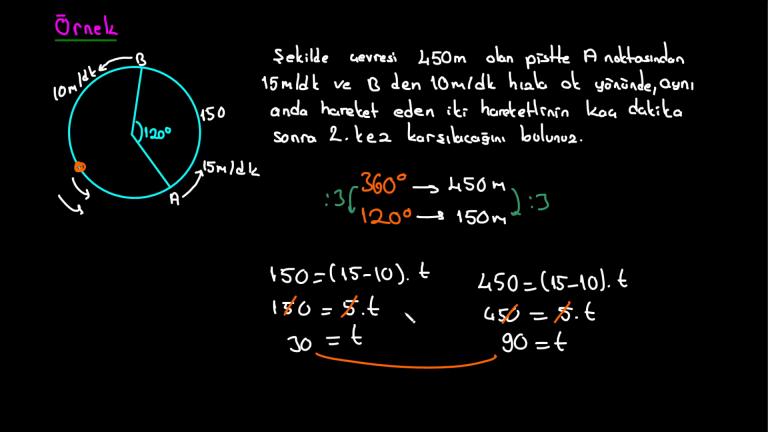 Örnek
Şekilde çevresi 450m olan pistte A noktasından
15m/dk ve B den 10m/dk hızla ok yönünde, aynı
anda hareket eden iki hareketlinin kaç dakika
sonra 2. kez karşılacağını bulunuz.
10m/dk
B
150
120°
15m/dk
A
:3 360° → 450m :3
120° → 150m
150=(15-10).t
150 = 5.t
30 = t
450=(15-10).t
450 = 5.t
90=t